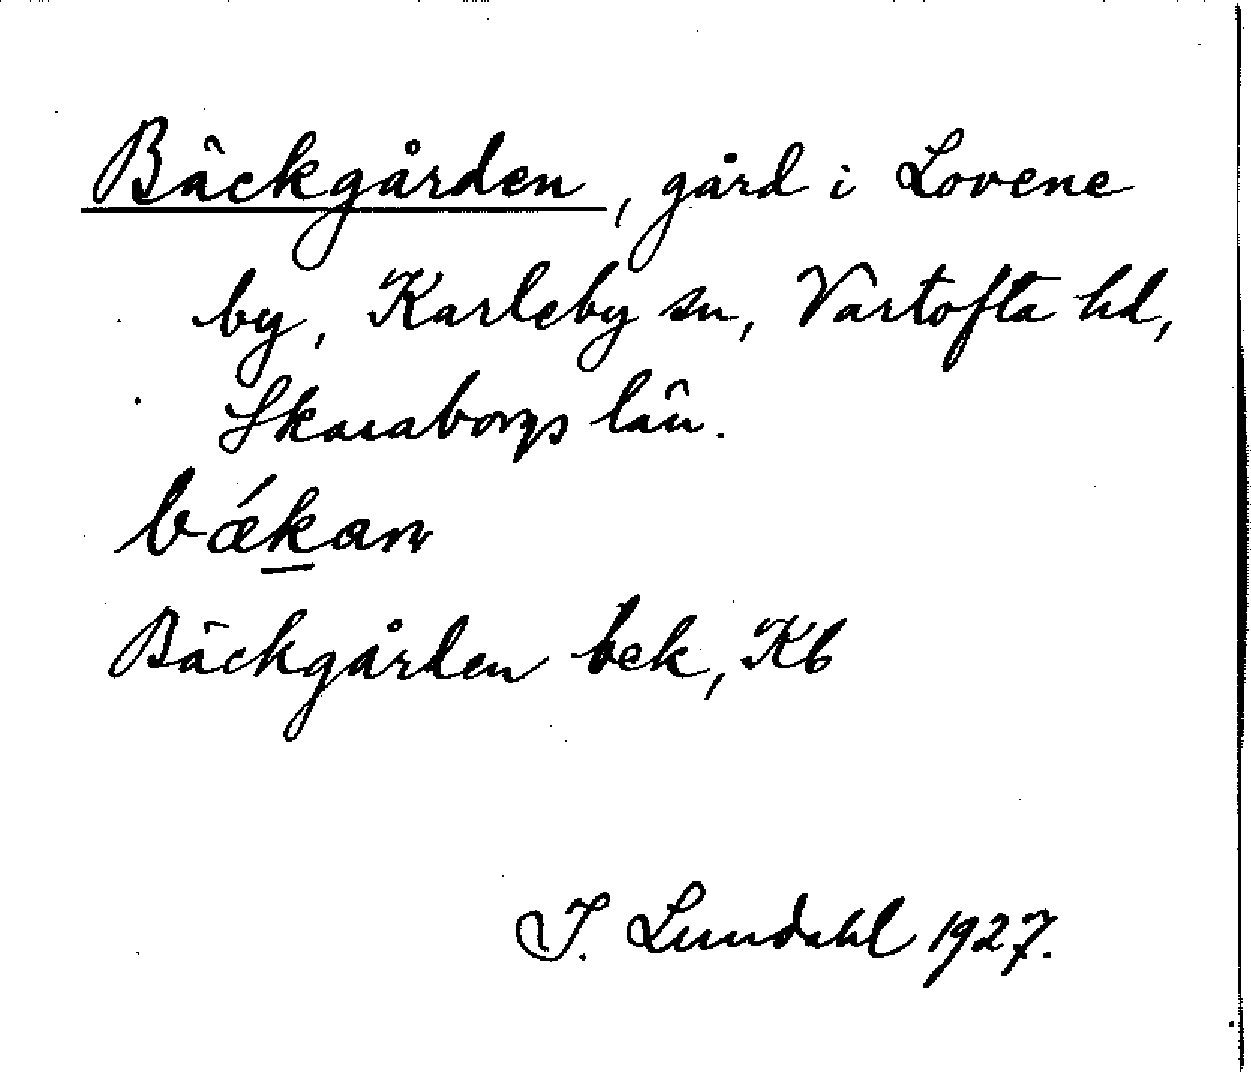 Bäckgården, gård i Lovene
by, Karleby sn, Vartofta hd,
Skaraborgs län.
bǽkan
Bäckgården bek, Kb
I. Lundahl 1927.